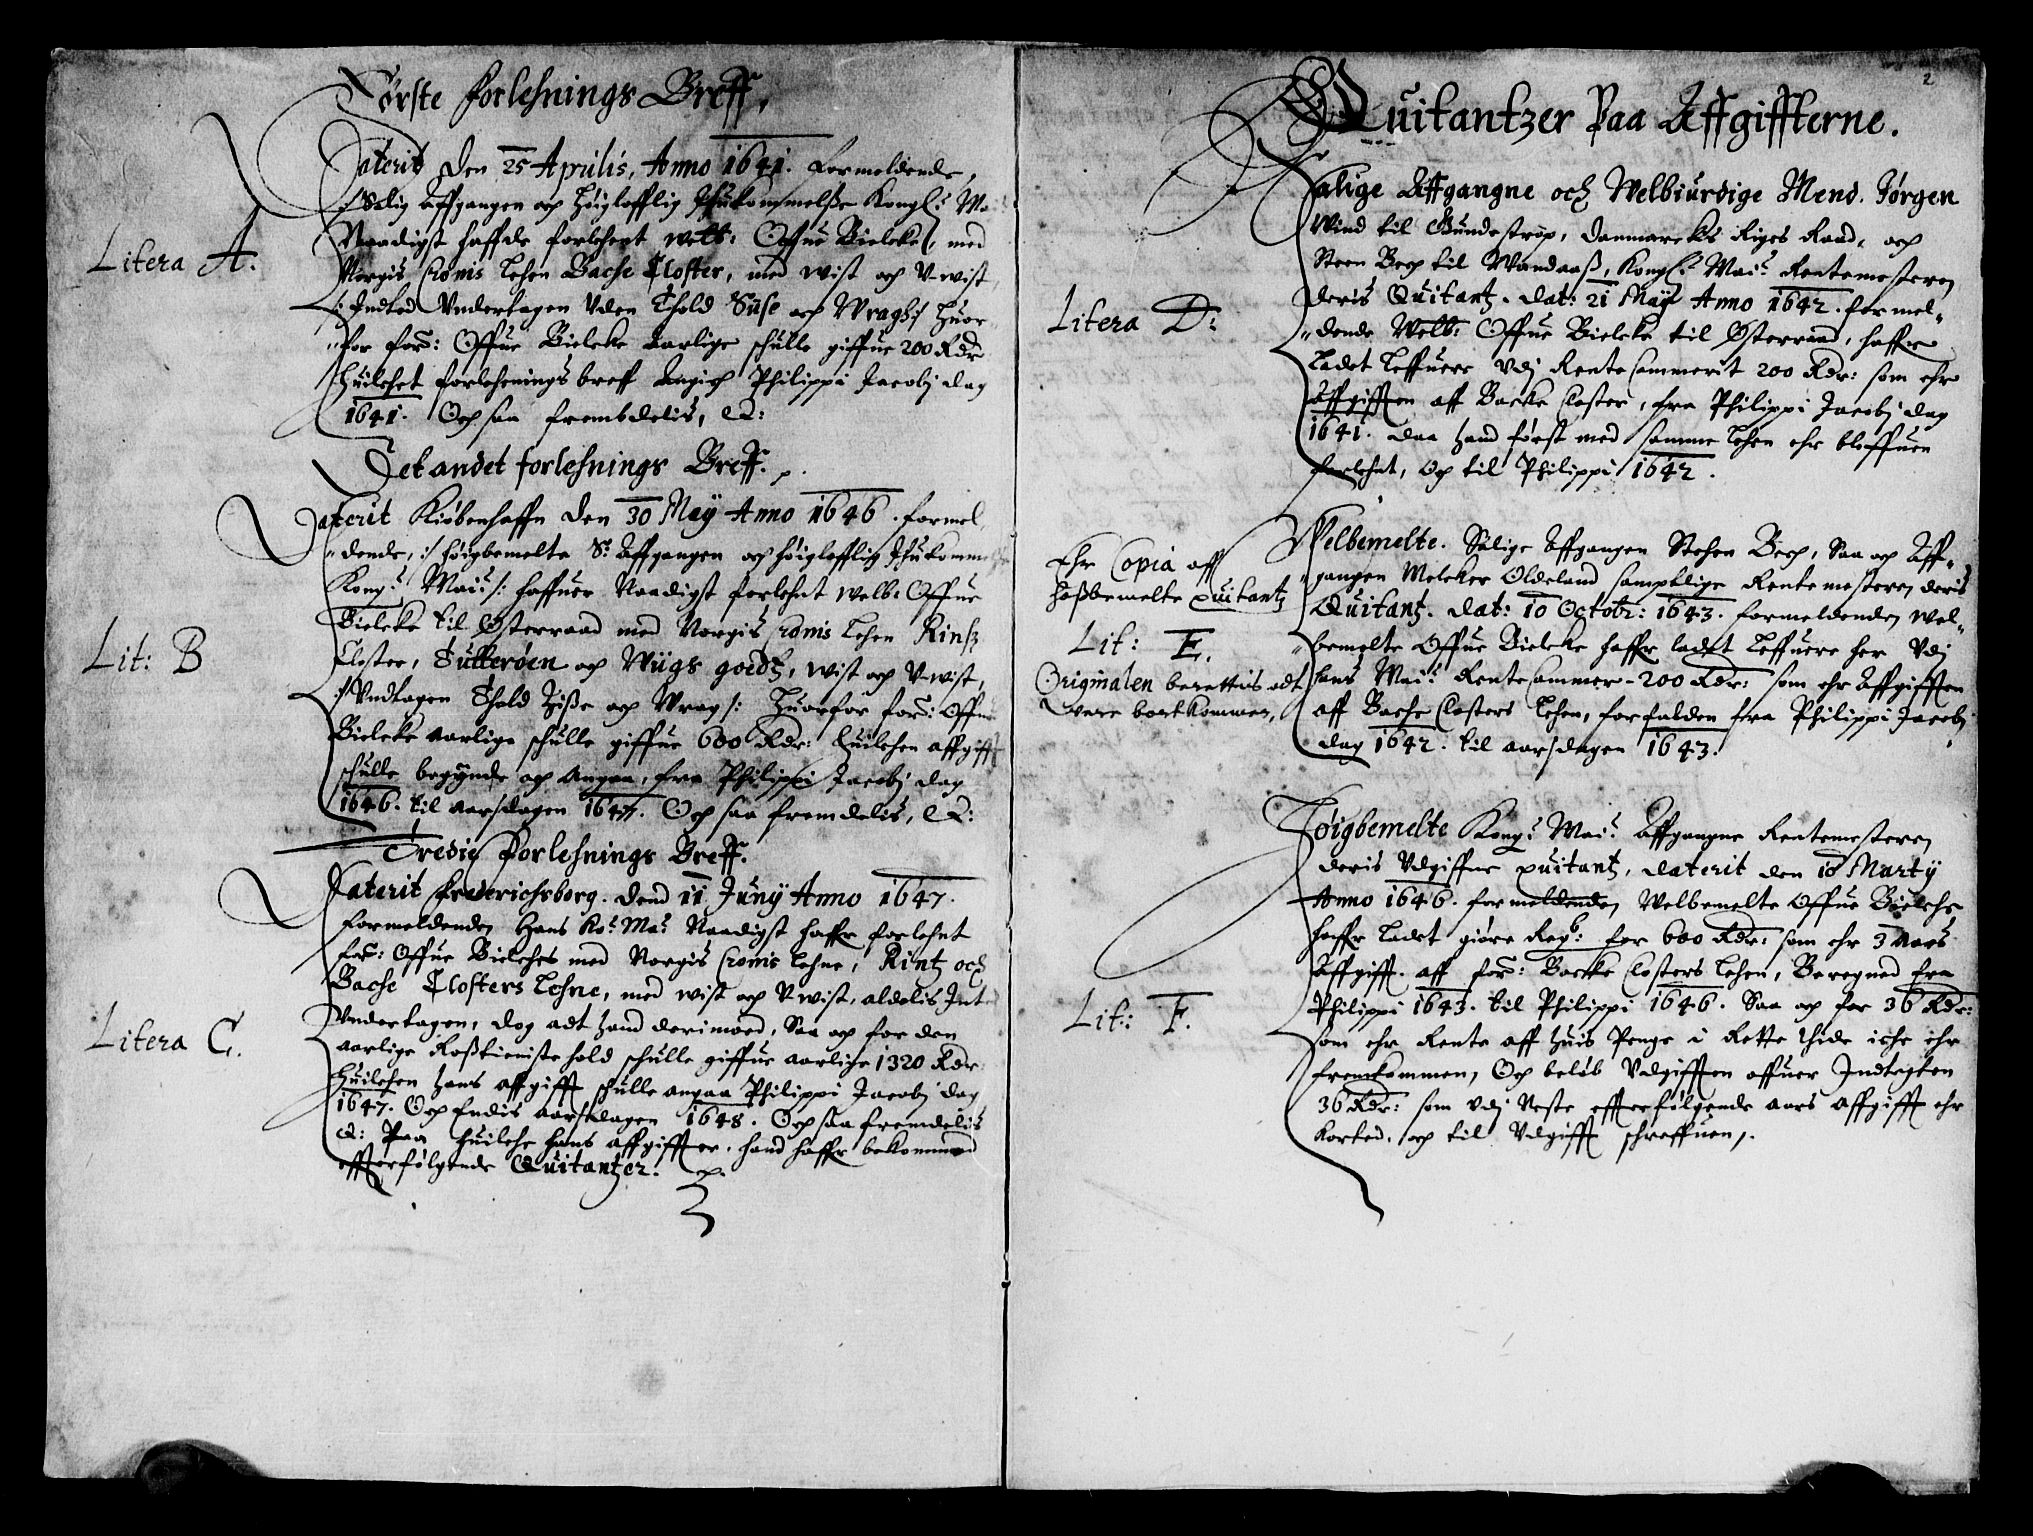 Første Forlehnings Breff,
Daterit Den 25 Aprilis, Anno 1641. Formeldende,
:/ Salig Affgangen och Høiglofflig Ihukommelsse Kongl:
Naadigst haffde forlehnt welb: Offue Bielcke, med
Litera A.
Norgis Cronis Lehen Backe Closter, med wist och V-wist,
:/ Inted Vndertagen Vden Thold Siise och Wragh:/ Huor
"for for: Offue Bielcke aarlige schulle giffue 200 Rdr
Huilchet forlehnings breff Angich Philippi Jacobj dag
1641. Och saa frembdelis, &:
Det andet forlehnings Breff.
Daterit Kiøbenhaffn den 30 Maÿ Anno 1646. formel,
"dende, :/ høigbemelte S: Affgangen och høiglofflig Ihukomm
Kong: Mai:/: haffuer Naadigst forlehnt welb: Offue
Lit: B
Bielcke til Østerraad med Norgis Cronis Lehen Rinsz
Closter, Tutterøen och Wiigs goedtz, wist och V-wist,
:/ Vndtagen Thold Ziisse och Wrag/: Huorfor for: Offue
Bielcke aarlige schulle giffue 600 Rdr: huilchen affgifft
schulle begÿnde och angaa, fra Philippi Jacobj dag
1646. til aarsdagen 1647. Och saa fremdelis, &:
Tredie Forlehnings Breff.
Daterit Frederichsborg. Dend 11 Junÿ Anno 1647.
Formeldenden Hans Ko: Ma: Naadigst haffr forlehnt
for: Offue Bielches med Norgis Cronis Lehne, Rintz och
Backe Closters Lehne, med wist och V-wist, aldelis Inted
Litera C.
Vndertagen, dog adt hand derimoed, Saa och for den
aarlige Rosstienistehold schulle giffue aarlige 1320 Rdr:
Huilchen hans affgifft schulle angaa Philippi Jacobj dag
1647. Och Endis aarsdagen 1648. Och saa fremdelis
&: Paa huilche hans affgiffter, hand haffr bekommed
effterfølgende Quitantzer.
2
Quitantzer Paa Affgiffterne.
Salige Affgangne och Welbiurdige Mend. Jørgen
Wind til Gundestrop, Danmarcks Riges Raad, och
Steen Bech til Wandaass, Kongl: Mai: Rentemesteren
Litera D:
deris Quitantz. dat: 21 Maÿ Anno 1642. formel,,
,,dende Welb: Offue Bielcke til Østerraad, haffr
Ladet Leffuere Vdj Rente Cammerit 200 Rdr: som ehr
Affgifften aff Backe Closter, fra Philippi Jacobj dag
1641. daa hand først med samme Lehen ehr bleffuen
forlehnt, Och til Philippi 1642.
Ehr Copia aff
hossbemelte quitantz
Lit: E.
Originalen berettis adt
Were bortkommen,
Welbemelte. Salige Affgangen Stehen Bech, Saa och Aff,,
,,gangen Melcker Oldeland samptlige Rentemesteren deris
Quitantz. Dat: 10 Octobr: 1643. formeldenden Wel,,
,,bemelte Offue Bielcke haffr ladet Leffuere her Vdj
hans Mai: Rente Cammer - 200 Rdr: som ehr Affgifften
aff Backe Closters Lehen, forfalden fra Philippi Jacobj
dag 1642. til aarsdagen 1643.
Høigbemelte Kong: Mai: affgangne Rentemesteren
deris Vdgiffne quitantz, Daterit den 10 Martÿ
Anno 1646. formeldenden Welbemelte Offue Bielche
haffr Ladet giøre Regb: for 600 Rdr: som ehr 3 Aars
Affgifft. aff for: Backe Closters Lehen, Beregned fra
Lit: F.
Philippi 1643. til Philippi 1646. Saa och for 36 Rdr:
som ehr Rente aff huis Penge i Rette thide iche ehr
fremkommen, Och beløb Vdgifften offuer Indtegten
36 Rdr: som Vdj Neste effterfølgende aars affgifft ehr
korted. och til Vdgifft schreffuen,.